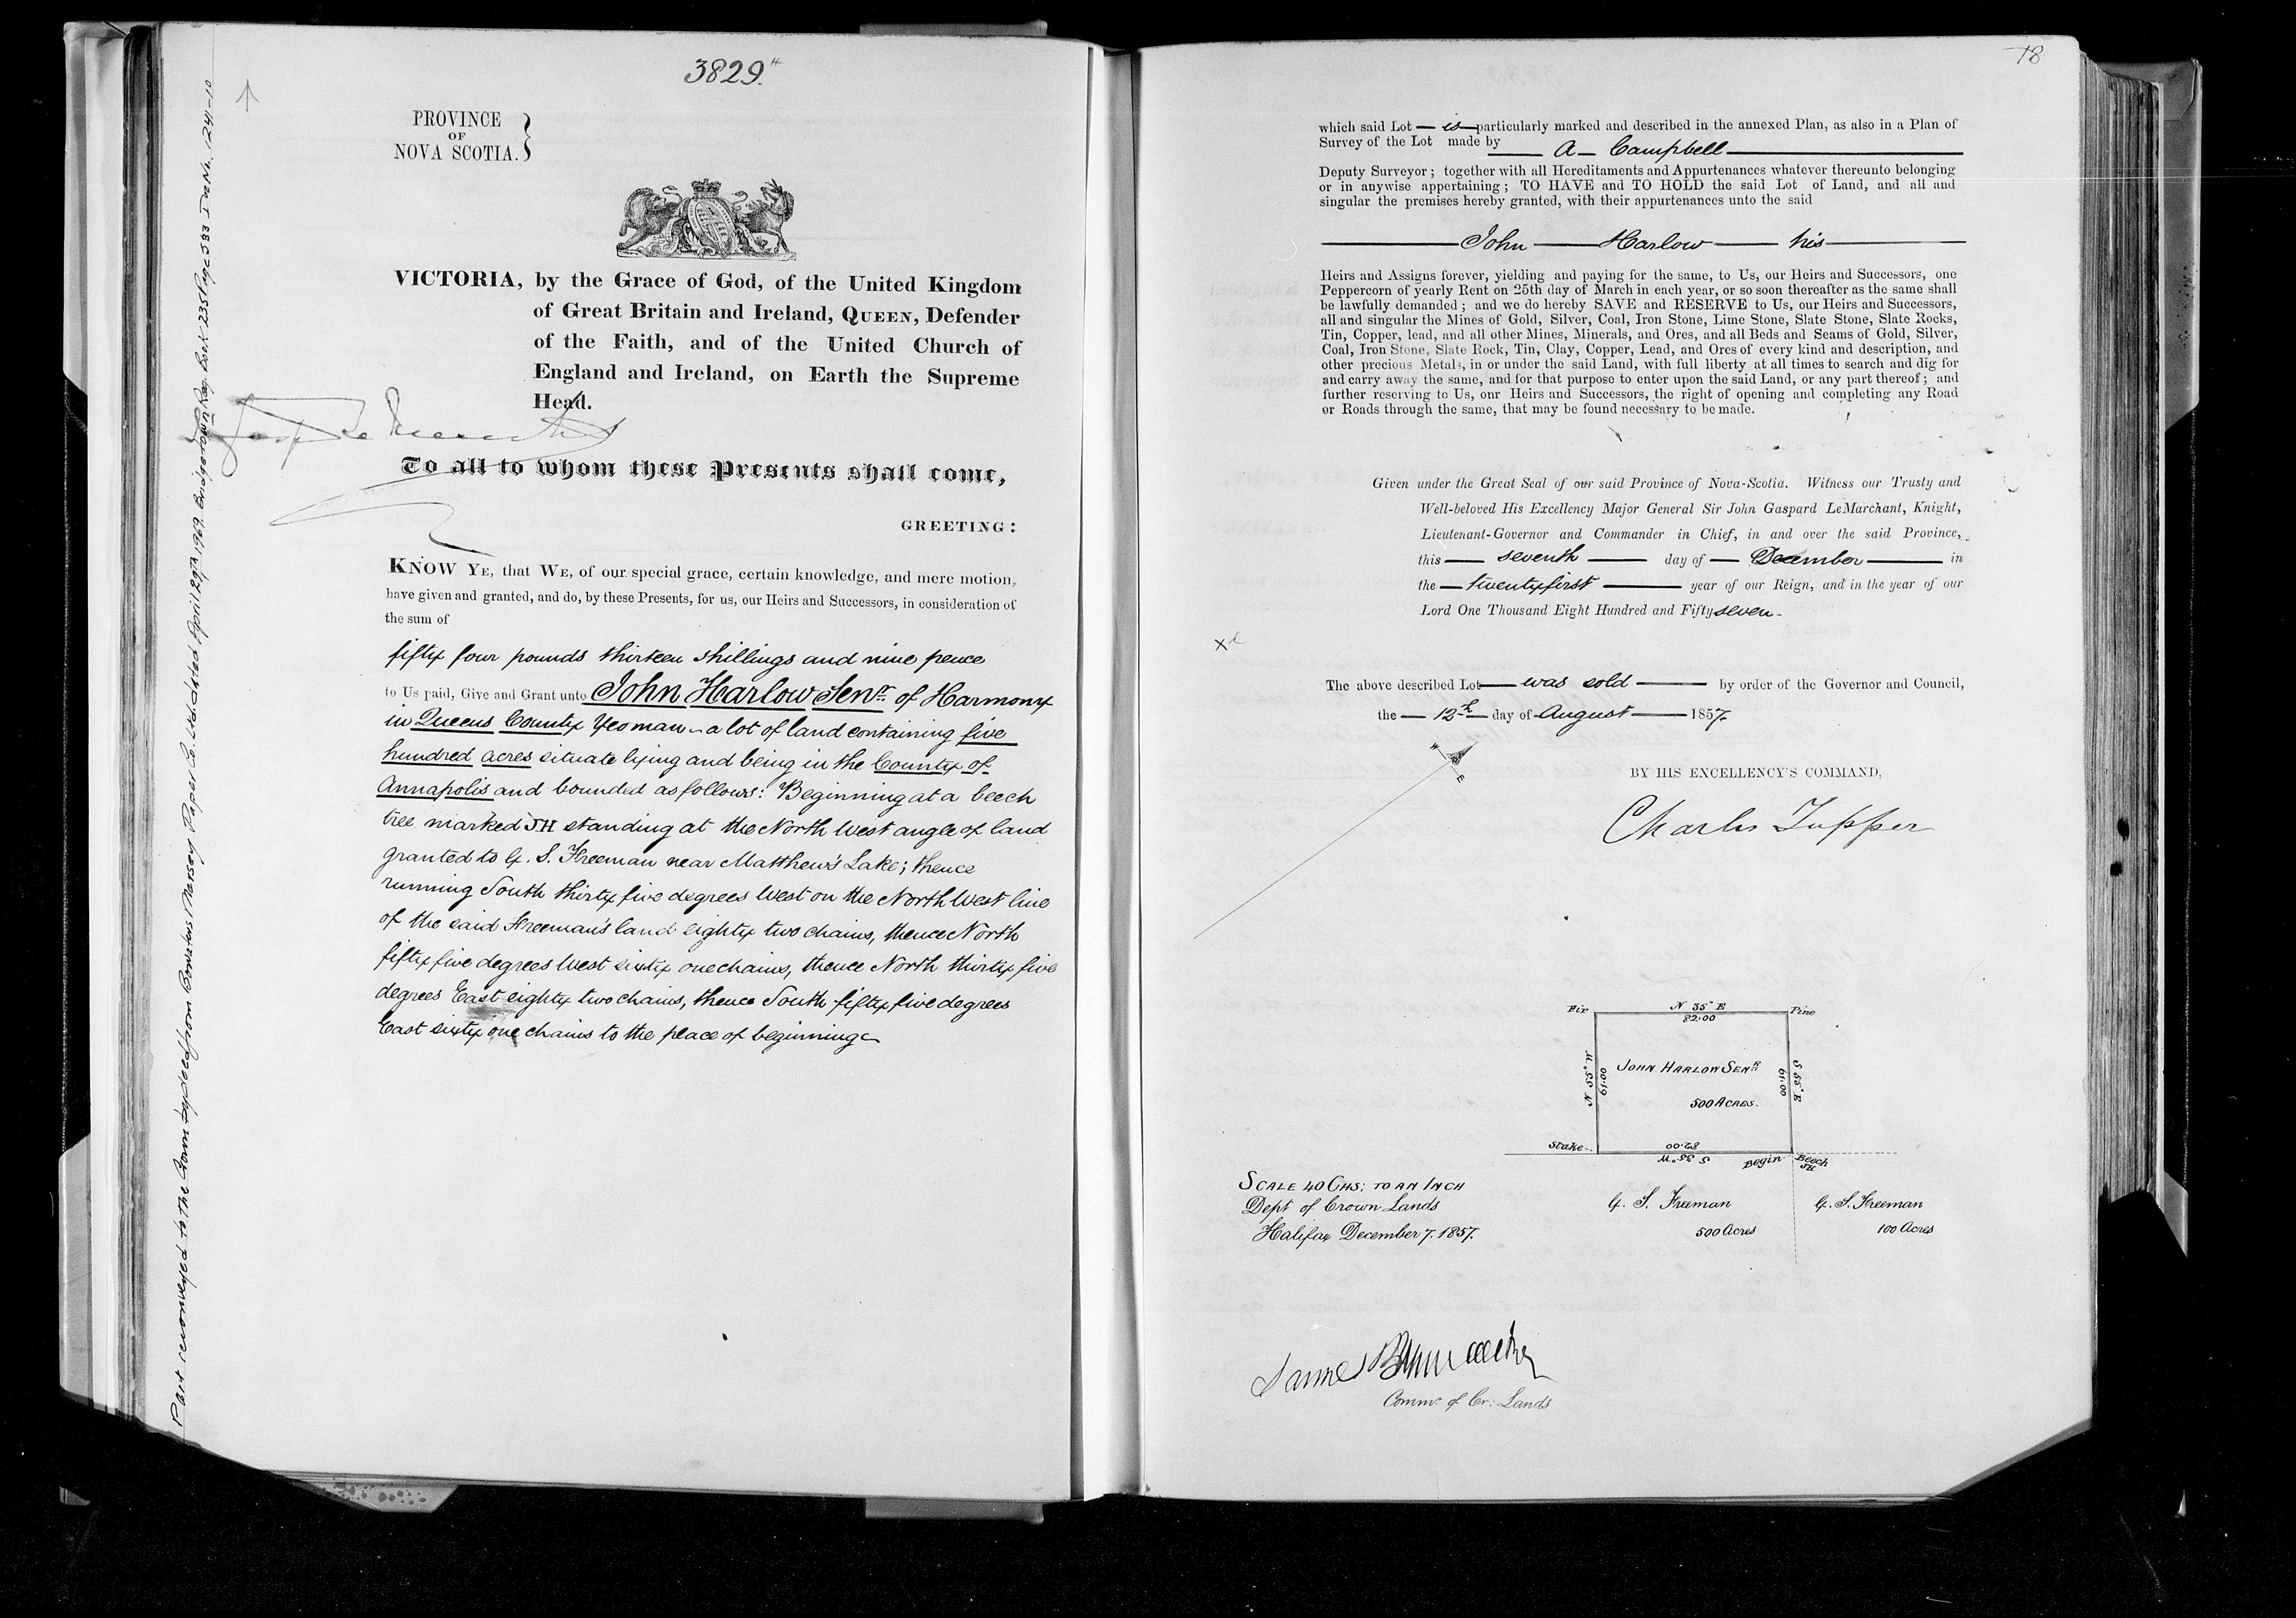 3829
PROVINCE
OF
NOVA SCOTIA.
VICTORIA, by the Grace of God, of the United Kingdom
of Great Britain and Ireland, QUEEN, Defender
of the Faith, and of the United Church of
England and Ireland, on Earth the Supreme
Head.
To all to whom these Presents shall come,
GREETING:
KNOW YE, that WE, of our special grace, certain knowledge, and mere motion,
have given and granted, and do, by these Presents, for us, our Heirs and Successors, in consideration of
the sum of
fifty four pounds thirteen shillings and nine pence
to Us paid, Give and Grant unto John Harlow Senr. of Harmony
in Queens County Yeoman a lot of land containing five
hundred acres situate lying and being in the County of
Annapolis and bounded as follows: Beginning at a beech
tree marked JH standing at the North West angle of land
granted to G. S. Freeman near Matthew's Lake; thence
running South thirty five degrees West on the North West line
of the said Freeman's land eighty two chains, thence North
fifty five degrees West sixty one chains, thence North thirty five
degrees East eighty two chains, thence South fifty five degrees
East sixty one chains to the place of beginning
Part reconveyed to the Crown by deed from Bowaters Mersey Paper Co. Ltd. dated April 29th 1969. Bridgetown Reg. Book 235 Page 583
18
which said Lot — is — particularly marked and described in the annexed Plan, as also in a Plan of
Survey of the Lot made by A Campbell
Deputy Surveyor; together with all Hereditaments and Appurtenances whatever thereunto belonging
or in anywise appertaining; TO HAVE and TO HOLD the said Lot of Land, and all and
singular the premises hereby granted, with their appurtenances unto the said
John Harlow his
Heirs and Assigns forever, yielding and paying for the same, to Us, our Heirs and Successors, one
Peppercorn of yearly Rent on 25th day of March in each year, or so soon thereafter as the same shall
be lawfully demanded; and we do hereby SAVE and RESERVE to Us, our Heirs and Successors,
all and singular the Mines of Gold, Silver, Coal, Iron Stone, Lime Stone, Slate Stone, Slate Rocks,
Tin, Copper, lead, and all other Mines, Minerals, and Ores, and all Beds and Seams of Gold, Silver,
Coal, Iron Stone, Slate Rock, Tin, Clay, Copper, Lead, and Ores of every kind and description, and
other precious Metals, in or under the said Land, with full liberty at all times to search and dig for
and carry away the same, and for that purpose to enter upon the said Land, or any part thereof; and
further reserving to Us, our Heirs and Successors, the right of opening and completing any Road
or Roads through the same, that may be found necessary to be made.
Given under the Great Seal of our said Province of Nova-Scotia. Witness our Trusty and
Well-beloved His Excellency Major General Sir John Gaspard LeMarchant, Knight,
Lieutenant-Governor and Commander in Chief, in and over the said Province,
this — seventh — day of — December — in
the — twenty first — year of our Reign, and in the year of our
Lord One Thousand Eight Hundred and Fifty seven
The above described Lot — was sold — by order of the Governor and Council,
the — 12th — day of August — 1857.
BY HIS EXCELLENCY'S COMMAND,
Charles Tupper
Fir N 35° E Pine
82.00
N 55° W
61.00
JOHN HARLOW SENR
500 ACRES.
61.00
S 55° E
Stake
82.00
S 35° W
Begin Beech
JH
SCALE 40 CHS: TO AN INCH
Dept of Crown Lands
Halifax December 7. 1857.
G. S. Freeman
500 Acres
G. S. Freeman
100 Acres
Commr. of Cr: Lands